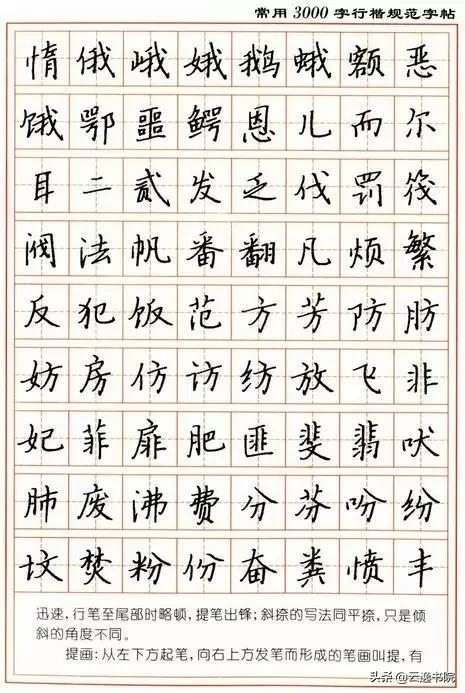 常用3000字行楷规范字帖
惰俄峨娥鹅蛾额恶
饿鄂噩鳄恩儿而尔
耳二贰发乏伐罚筏
阀法帆番翻凡烦繁
反犯饭范方芳防肪
妨房仿访纺放飞非
妃菲扉肥匪斐翡吠
肺废沸费分芬吩纷
坟焚粉份奋粪愤丰
迅速，行笔至尾部时略顿，提笔出锋；斜捺的写法同平捺，只是倾
斜的角度不同。
提画：从左下方起笔，向右上方发笔而形成的笔画叫提，有
头条@云逸书院